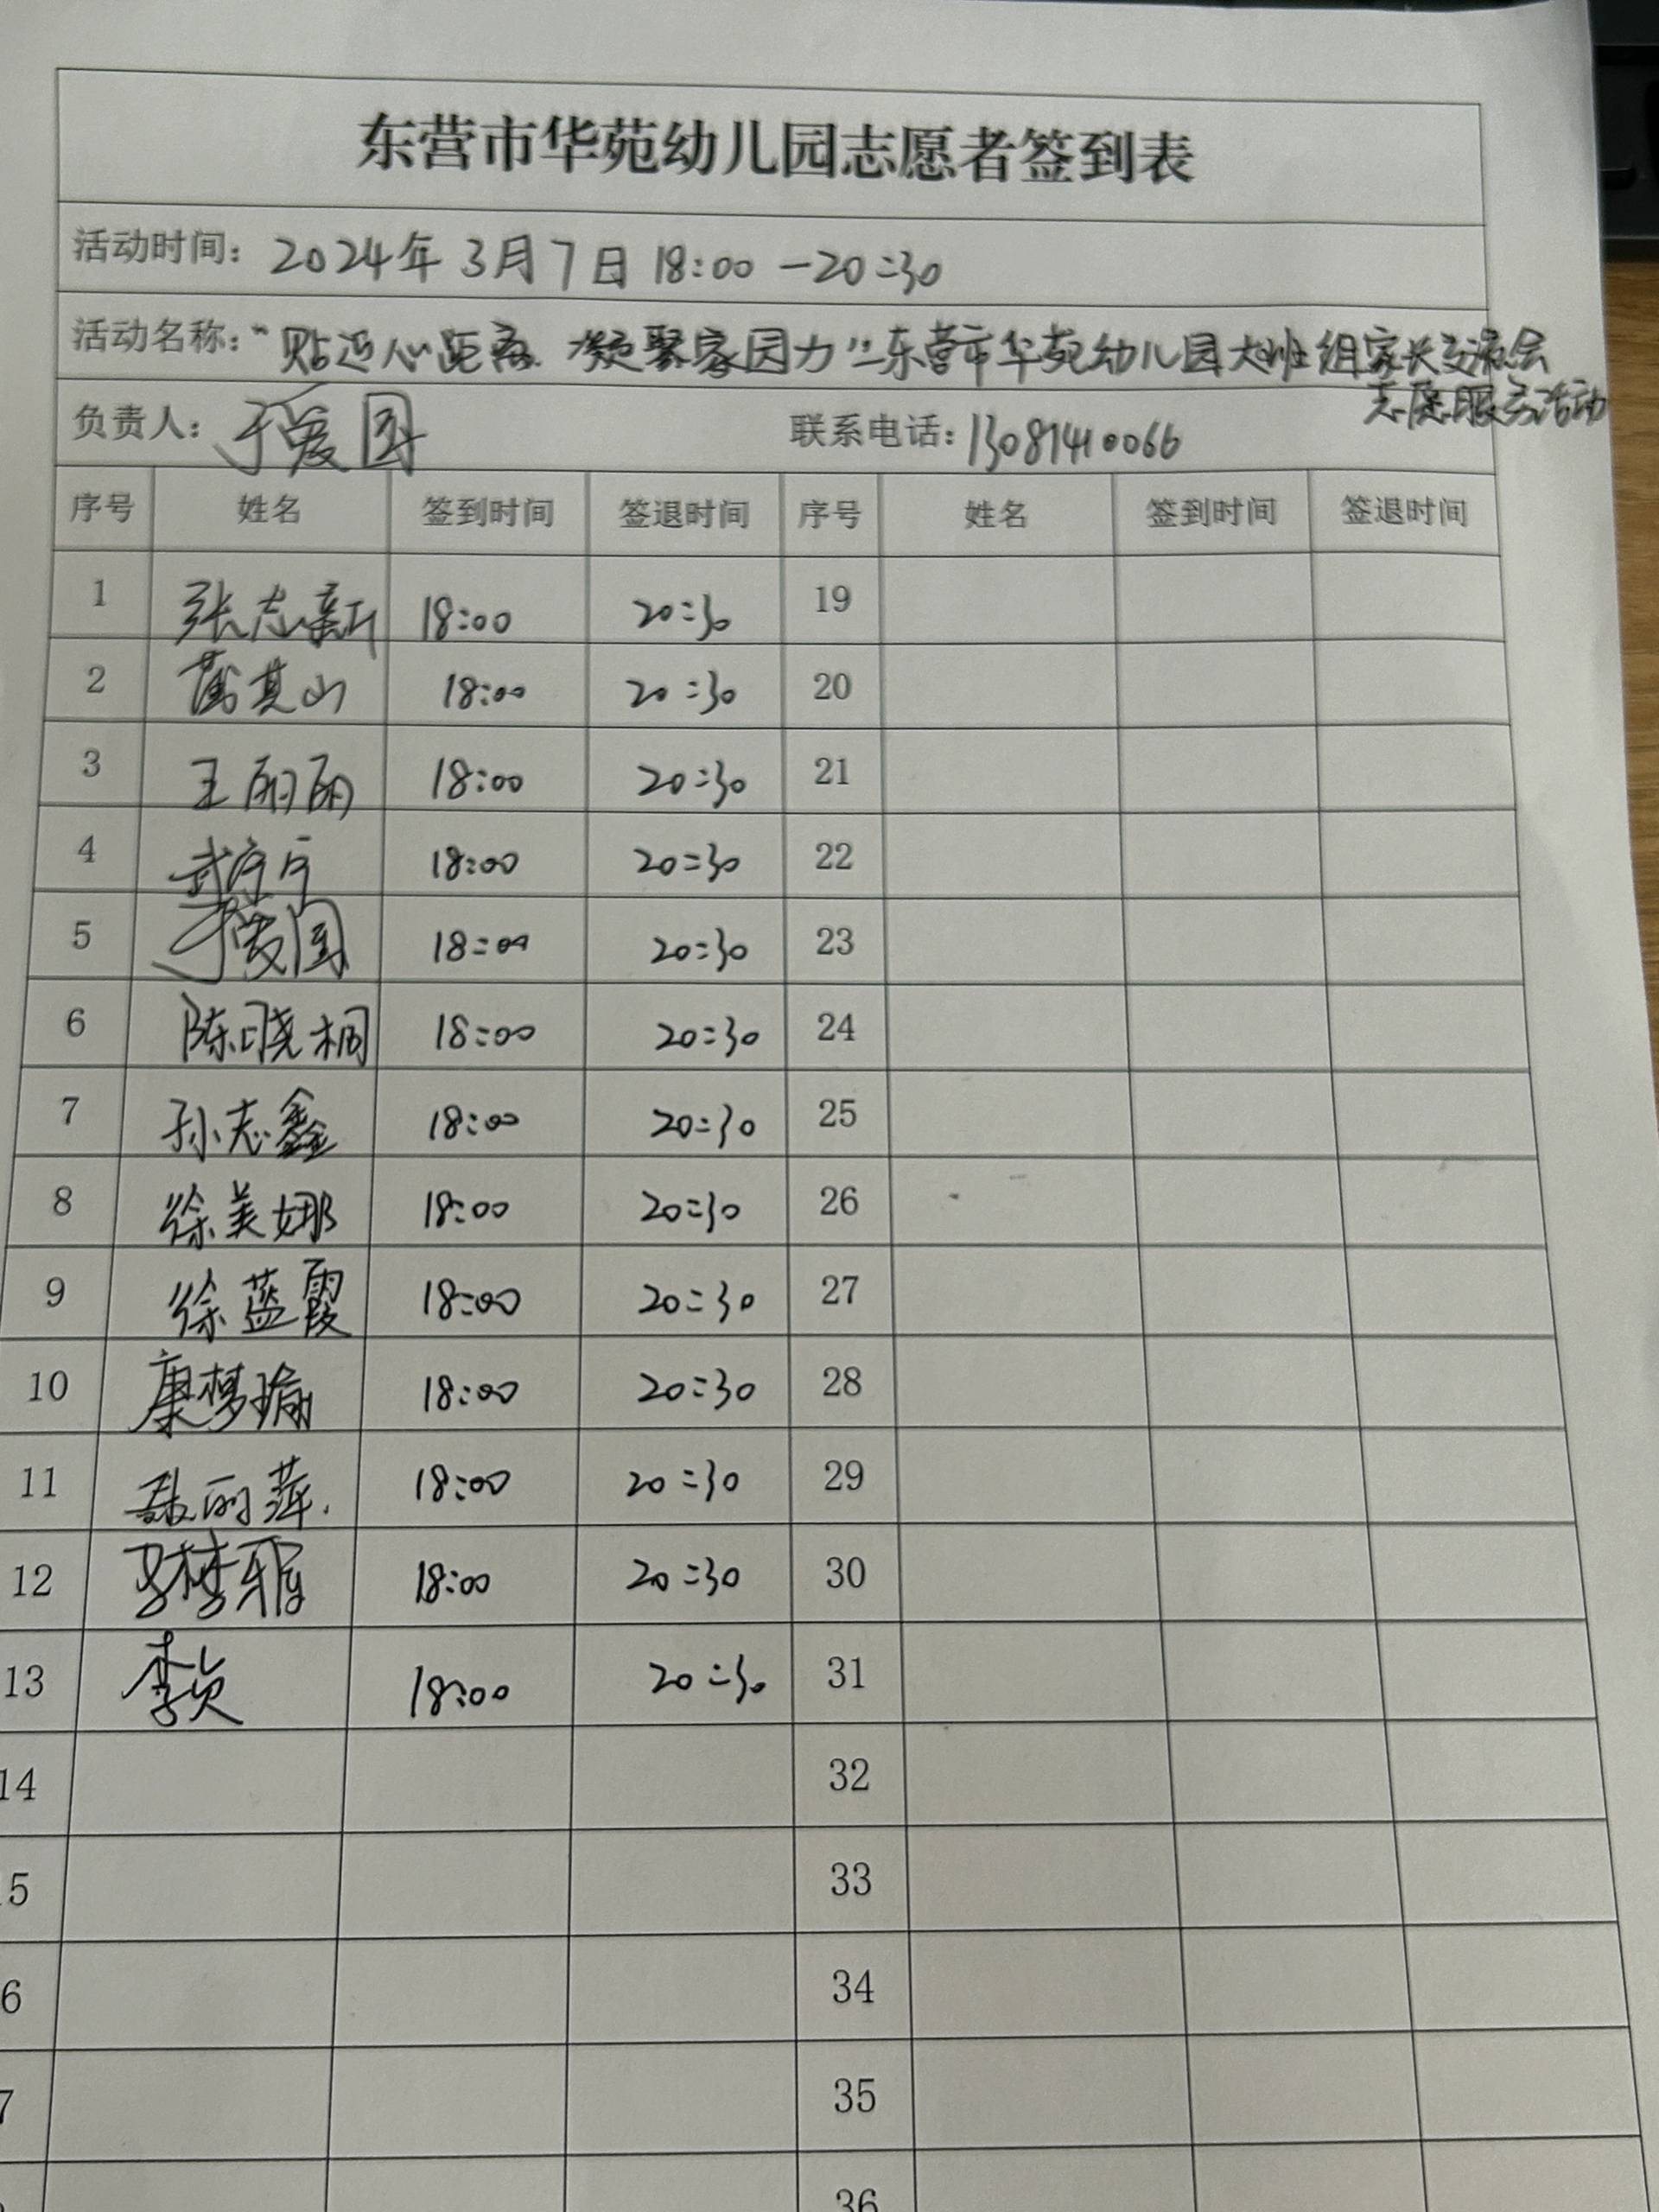 东营市华苑幼儿园志愿者签到表
活动时间：2024年3月7日18:00-20:30
活动名称：“贴近心距离 凝聚家园力”—东营市华苑幼儿园大班组家长交流会
志愿服务活动
负责人：于爱国 联系电话：13081410066
序号 姓名 签到时间 签退时间 序号 姓名 签到时间 签退时间
1 张志新 18:00 20:30 19
2 其山 18:00 20:30 20
3 王丽丽 18:00 20:30 21
4 武宁宁 18:00 20:30 22
5 于爱国 18:00 20:30 23
6 陈晓桐 18:00 20:30 24
7 孙志鑫 18:00 20:30 25
8 徐美娜 18:00 20:30 26
9 徐蓝霞 18:00 20:30 27
10 康梦瑜 18:00 20:30 28
11 聂丽萍. 18:00 20:30 29
12 18:00 20:30 30
13 李贞 18:00 20:30 31
14 32
5 33
6 34
7 35
36